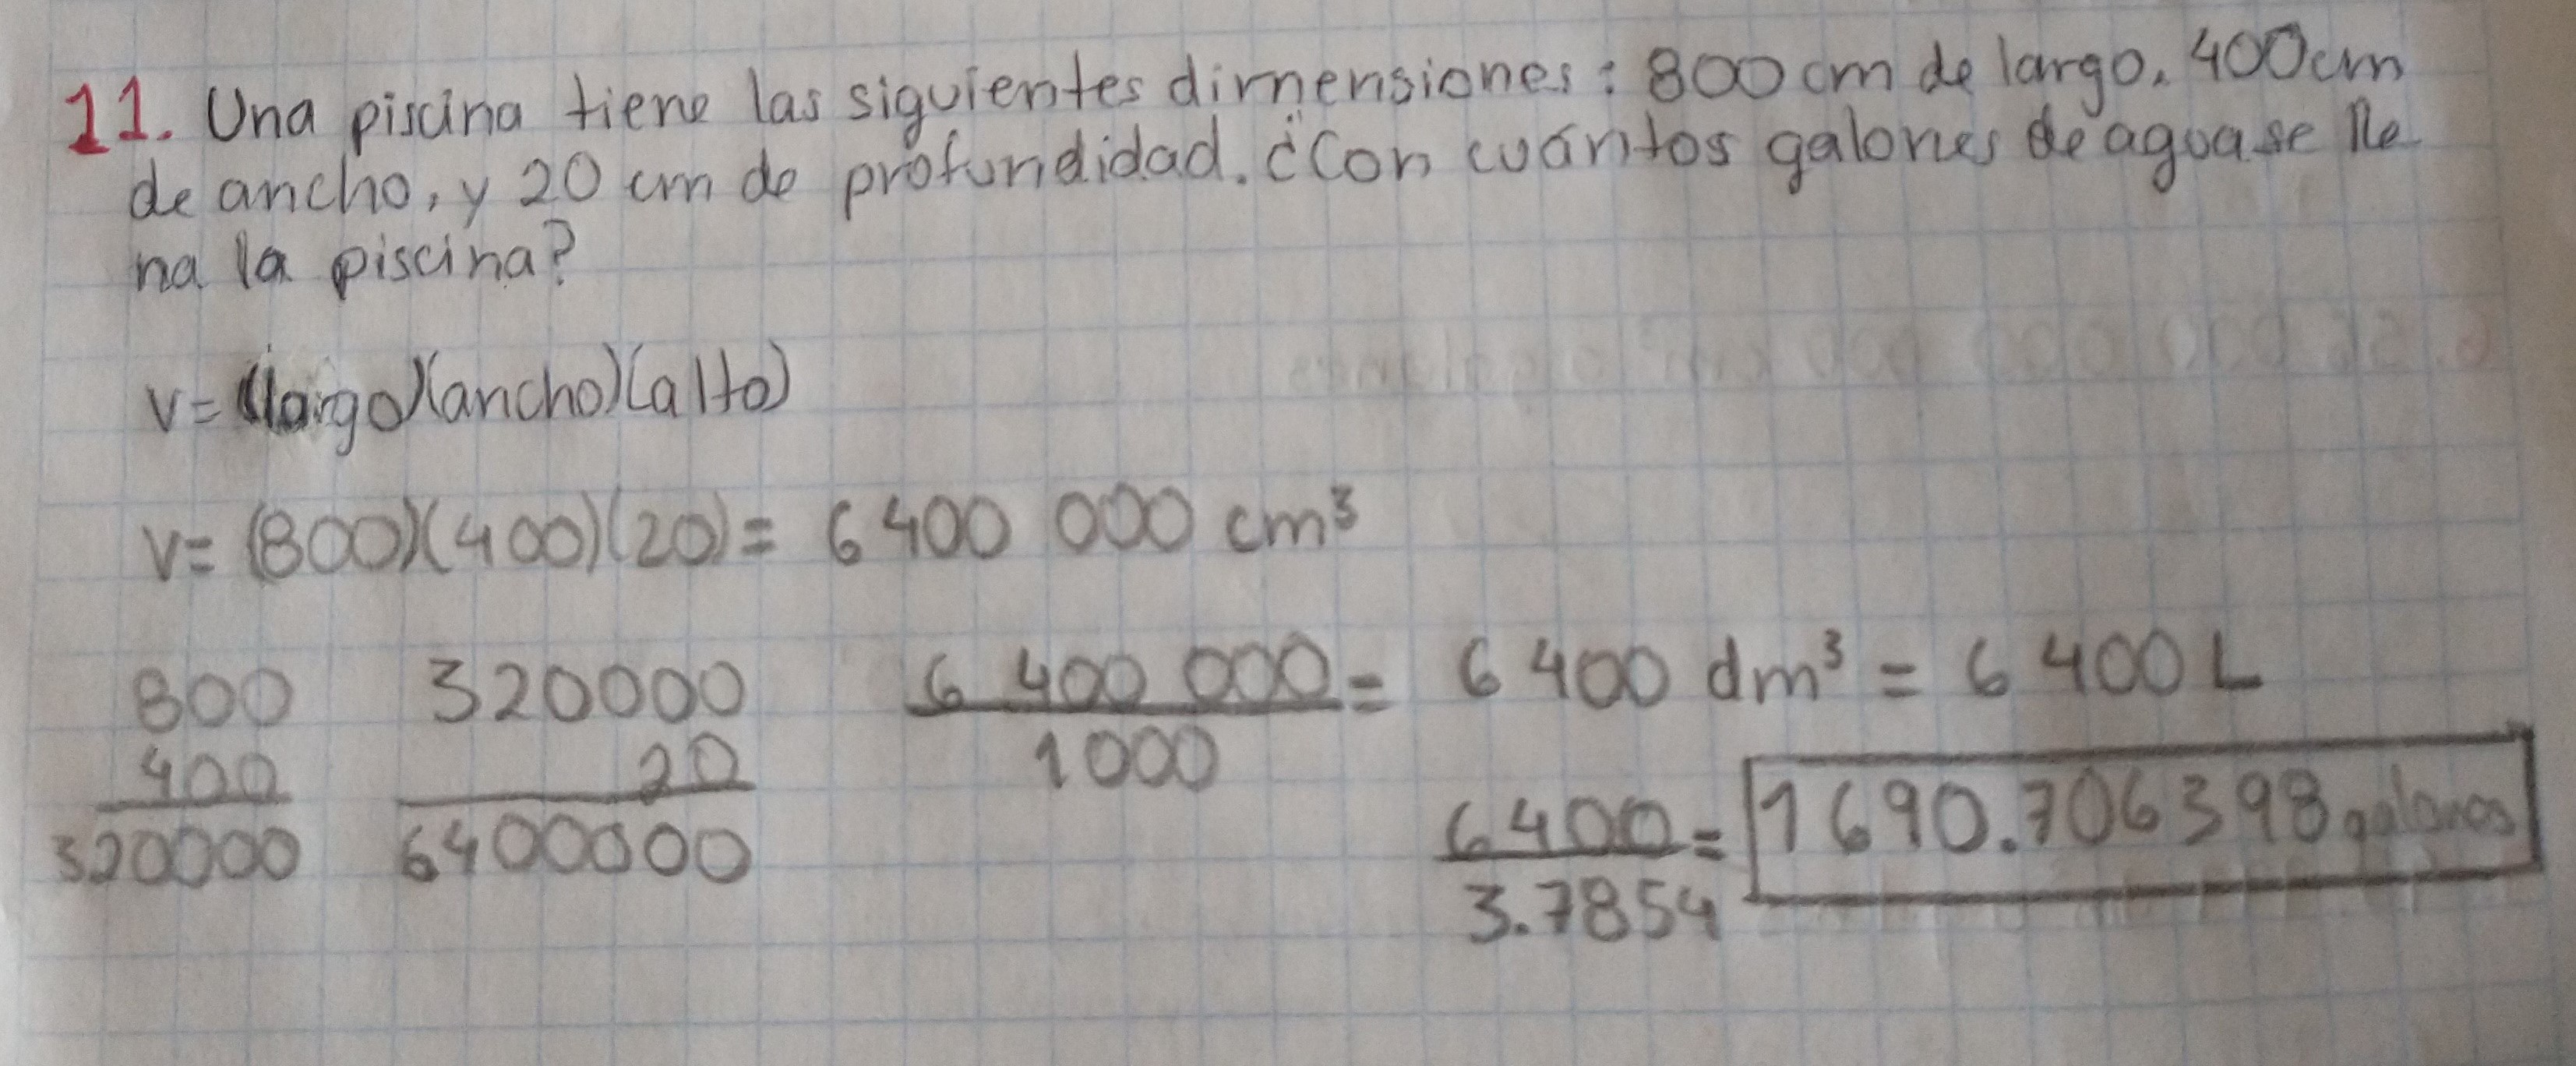 11. Una piscina tiene las siguientes dimensiones: 800 cm de largo, 400 cm
de ancho, y 20 cm de profundidad. ¿Con cuántos galones de agua se lle
na la piscina?
v= (largo)(ancho)(alto)
v= (800)(400)(20)= 6 400 000 cm³
800 320000 6 400 000 = 6 400 dm³ = 6 400 L
400 20 1000
320000 6400000 6400 = 1690.706398 galones
3.7854